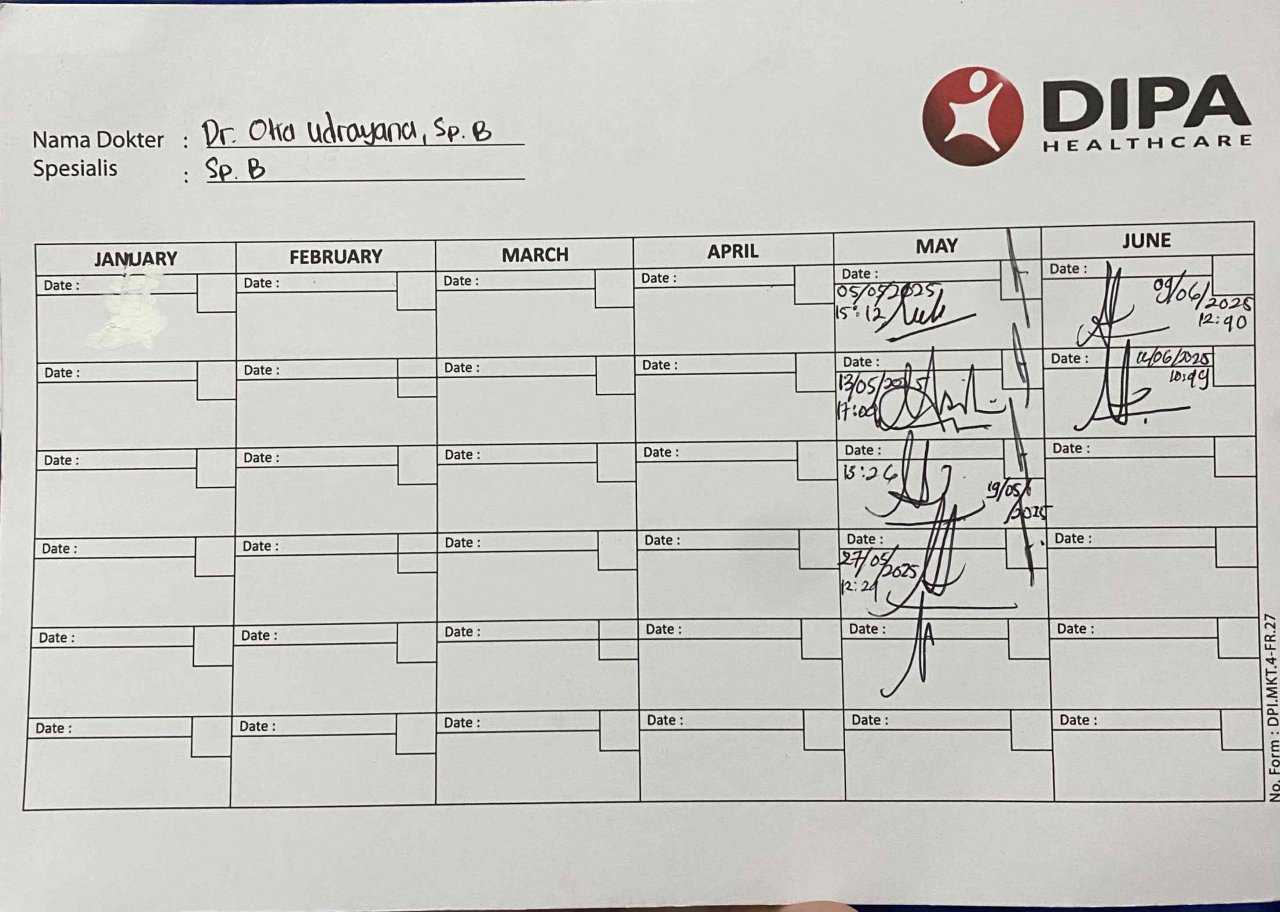 DIPA
HEALTHCARE
Nama Dokter : Dr. Oka Udrayana, Sp. B
Spesialis : Sp. B
JANUARY FEBRUARY MARCH APRIL MAY JUNE
Date : Date : Date : Date : Date : Date :
05/05/2025 09/06/2025
15:12 12:40
Date : Date : Date : Date : Date : Date :
13/05/2025 /06/2025
17:00 10:49
Date : Date : Date : Date : Date : Date :
15:26
19/05/2025
Date : Date : Date : Date : Date : Date :
27/05/2025
Date : Date : Date : Date : Date : Date :
Date : Date : Date : Date : Date : Date :
No. Form : DPI.MKT.4-FR.27